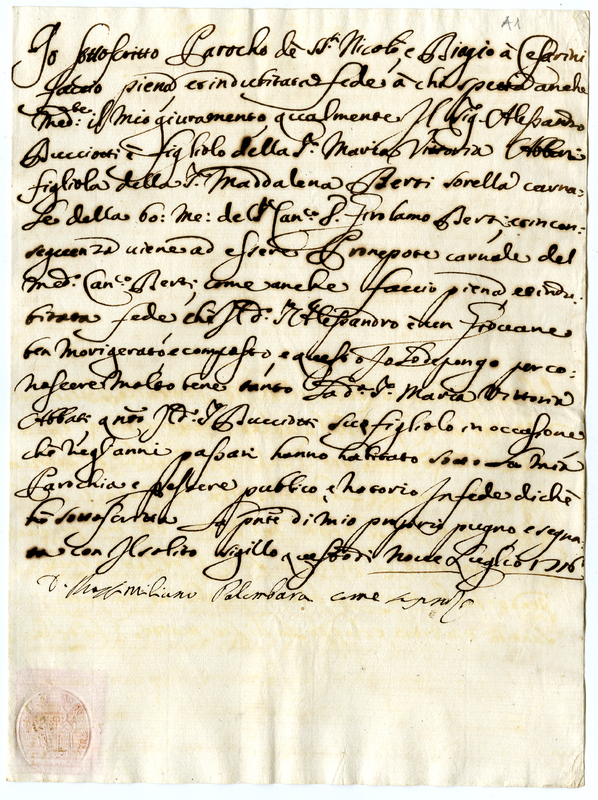 A1
Io sottoscritto Parocho de SS.ti Nicolò, e Biagio à Cesarini
faccio piena et indubitata fede à chi spetta anche
med:te il mio giuramento qualmente Il Sig.r Alessandro
Bucciotti è figliolo della S.ra Maria Vittoria Abbati
figliola della S.ra Maddalena Berti sorella carna=
le della bo: me: del Sig.r Can.co D. Girolamo Berti, et in con=
seguenza viene ad essere Pronepote carnale del
med.o Can.co Berti, come anche faccio piena et indu=
bitata fede che Il d.o S.r Alessandro è un Giovane
ben morigerato e composto, e questo Io lo depongo per co:
noscere molto bene tanto La d.a S.ra Maria Vittoria
Abbati q.nto Il d.o S.r Bucciotti suo figliolo in occasione
che negl'anni passati hanno habitato sotto La mia
Parochia e p essere publico, e notorio In fede di che
hò sottoscritta La pnte di mio proprio pugno e segna
ta con Il solito sigillo questo dì nove Luglio 1716
D. Massimiliano Palombara come sopra